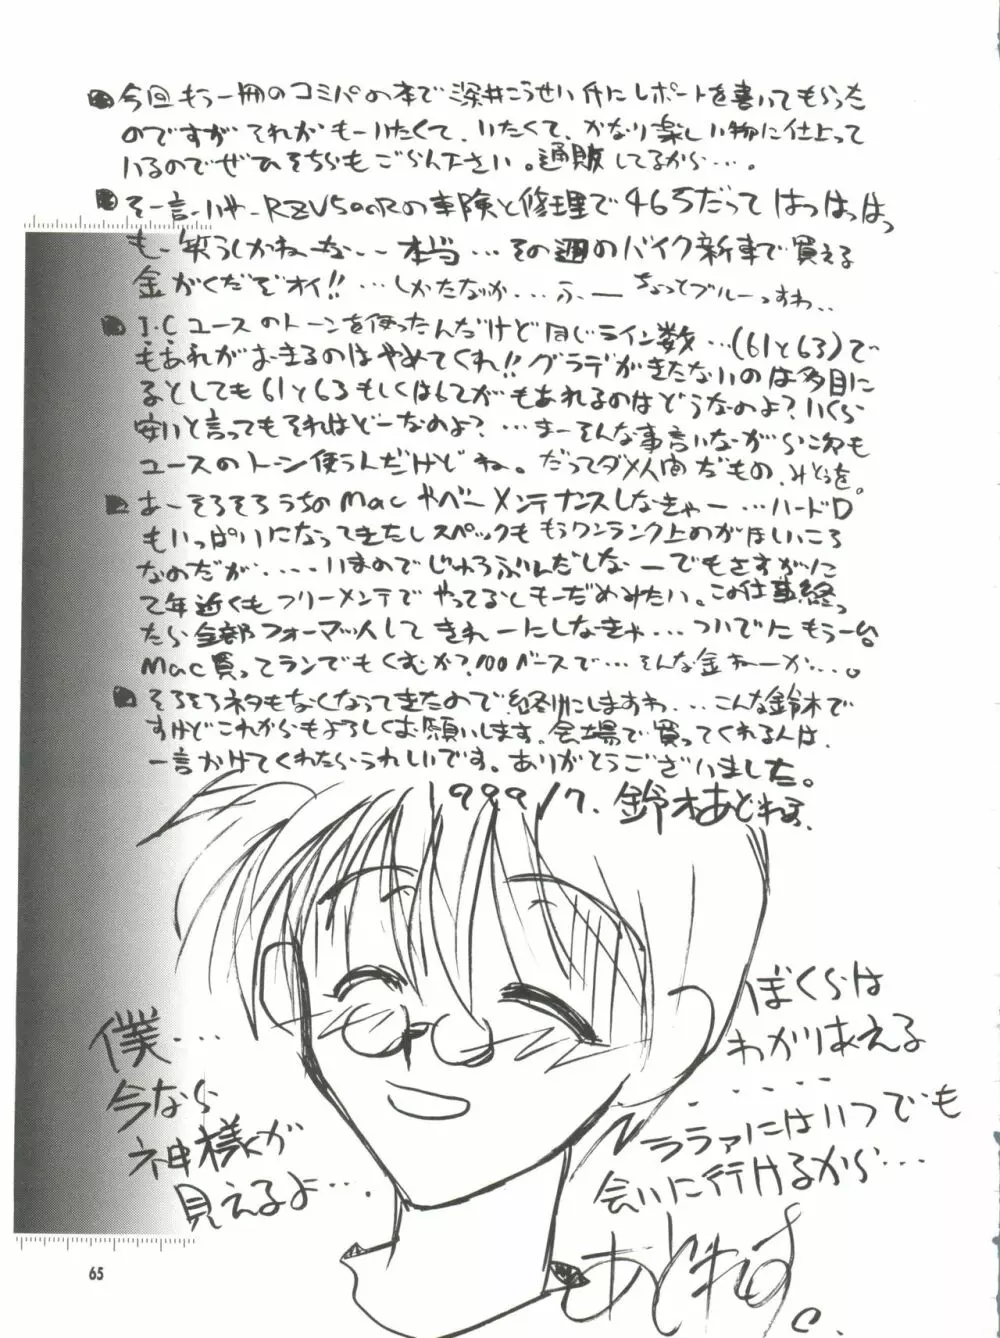 今回もう一冊のコミパの本で深井こうせい氏にレポートを書いてもらった
のですがそれがもーいたくて、いたくて、かなり楽しい物に仕上って
いるのでぜひそちらもごらん下さい。通販してるから・・・。
そー言ーいや-RZV500Rの車険と修理で465だってはっはっはっ
もー笑うしかねーなー・・本当・・・その週のバイク新車で買える
金がくだぞオイ!!・・・しかたなか・・・ふーちょっとブルーっすわ・・
I・Cユースのトーンを使ったんだけど同じライン数・・・(61と63)で
もあれがおきるのはやめてくれ!!グラデがきたないのは多目に
るとしても61と63もしくは62がもあれるのはどうなのよ?いくら
安いと言ってもそれはどーなのよ?・・・まーそんな事言いながら次も
ユースのトーン使うんだけどね。だってダメ人間だもの、みつを。
あーそろそろうちのMacやべーメンテナンスしなきゃー・・・ハードD
もいっぱいになってきたしスペックももうワンランク上のがほしいころ
なのだが・・・・いまのでじゅうぶんだしなーでもさすがに
2年近くもフリーメンテでやってるともーだめみたい。この仕事終っ
たら全部フォーマット入してきれーにしなきゃ・・・ついでにもう一台
Mac買ってランでもくむか?100ベースで・・・そんな金ねーか・・・。
そろそろネタもなくなってきたので終りにしますわ・・・こんな鈴木で
すけどこれからもよろしくお願いします。会場で買ってくれる人は、
一言かけてくれたらうれしいです。ありがとうございました。
1999/7. 鈴木あどねす.
僕・・・・
今なら
神様が
見えるよ・・・.
ぼくらは
わかりあえる
・・・・・
ララァにはいつでも
会いに行けるから・・・
あどねす。
65